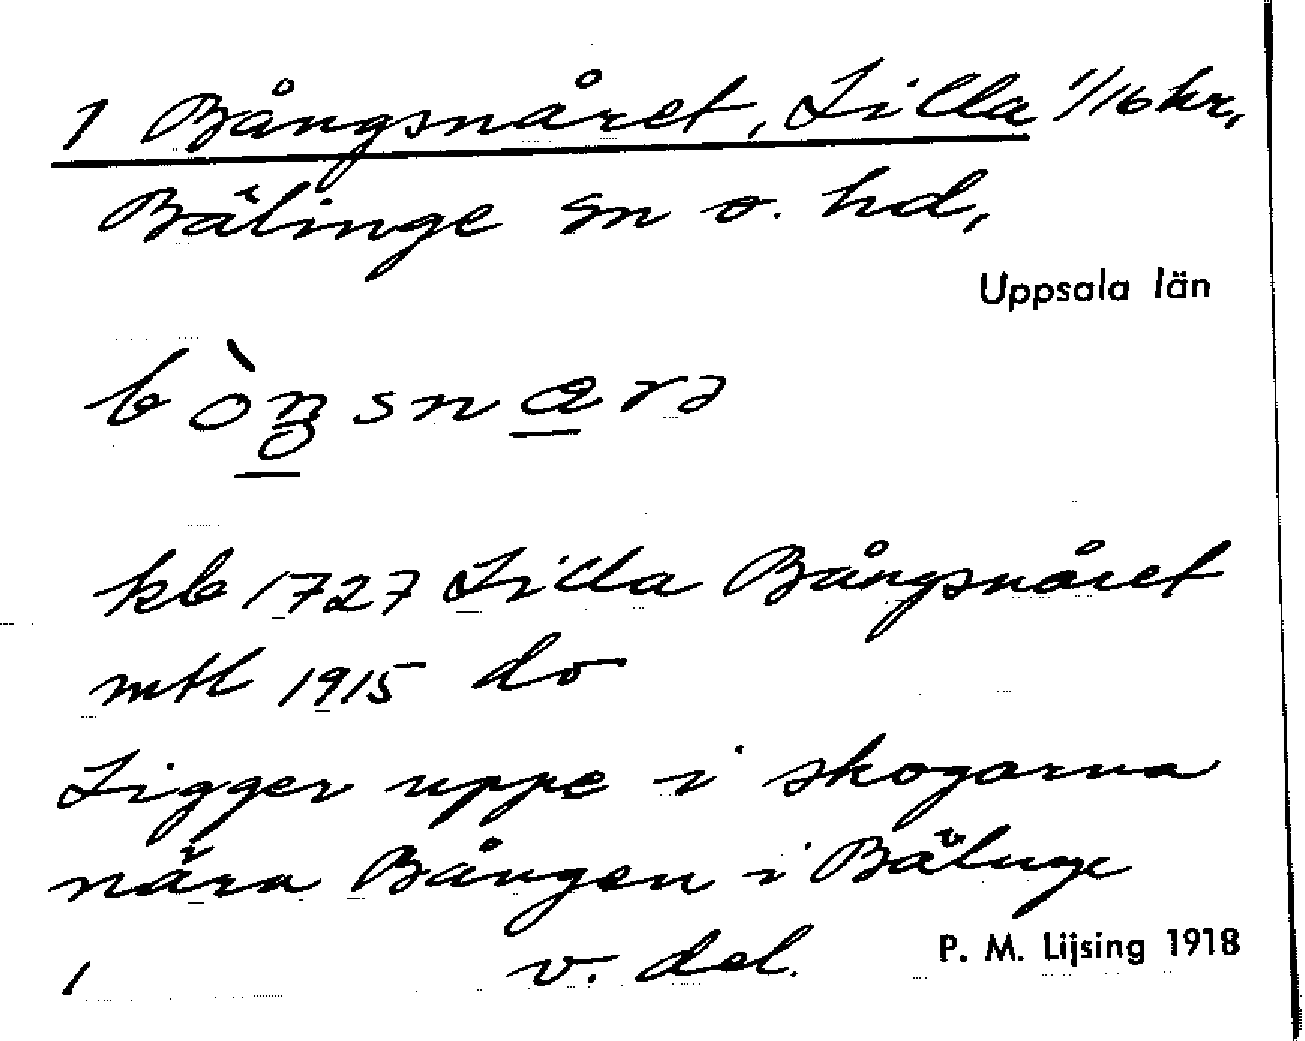 1 Bångsnåret, Lilla 1/16 kr,
Bälinge sn o. hd,
Uppsala län
kb 1727 Lilla Bångsnåret
mtl 1915 do
Ligger uppe i skogarna
nära Bången i Bälinge
v. del.
P. M. Lijsing 1918
1